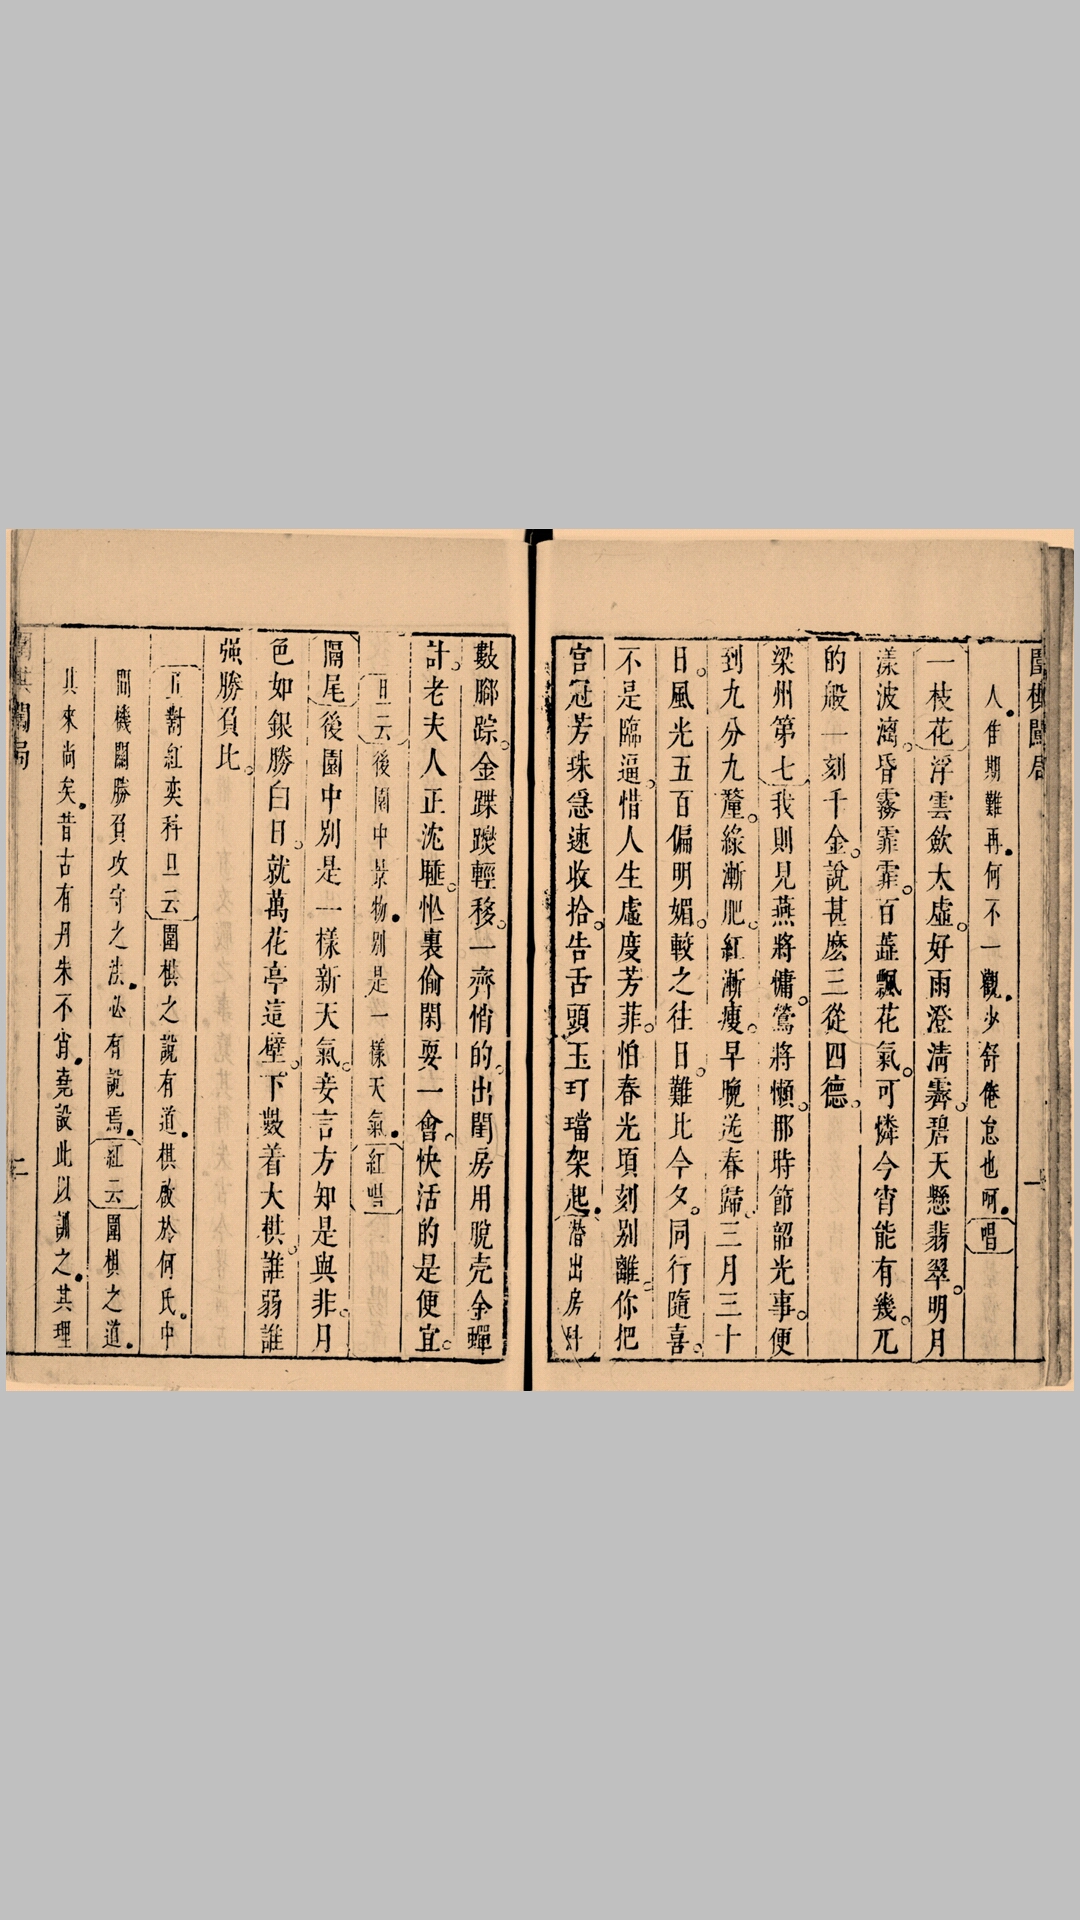 人隹期難再何不一觀少舒倦怠也呵唱
一枝花浮雲歛太虛好雨澄清霽碧天懸翡翠明月
漾波漓昏霧霏霏百蕋飄花氣可憐今宵能有幾兀
的般一刻千金說甚麽三從四德
梁州第七我則見燕將傭鶯將懶那時節韶光事便
到九分九釐綠漸肥紅漸瘦早晚送春歸三月三十
日風光五百偏明媚較之往日難比今夕同行隨喜
不是臨逼惜人生虛度芳菲怕春光頃刻別離你把
宮冠芳珠急速收拾告舌頭玉玎璫架起潛出房科
數腳踪金蹀躞輕移一齊悄的出閨房用脫壳金蟬
計老夫人正沈睡忙裏偷閑耍一會快活的是便宜
旦云後園中景物別是一樣天氣紅唱
隔尾後園中別是一樣新天氣妾言方知是與非月
色如銀勝白日就萬花亭這壁下數着大棋誰弱誰
强勝負比
下對紅奕科旦云圍棋之說有道棋啟於何氏中
間機關勝負攻守之法必有說焉紅云圍棋之道
其來尚矣昔古有丹朱不肖堯設此以訓之其理
圍棋闖局 二